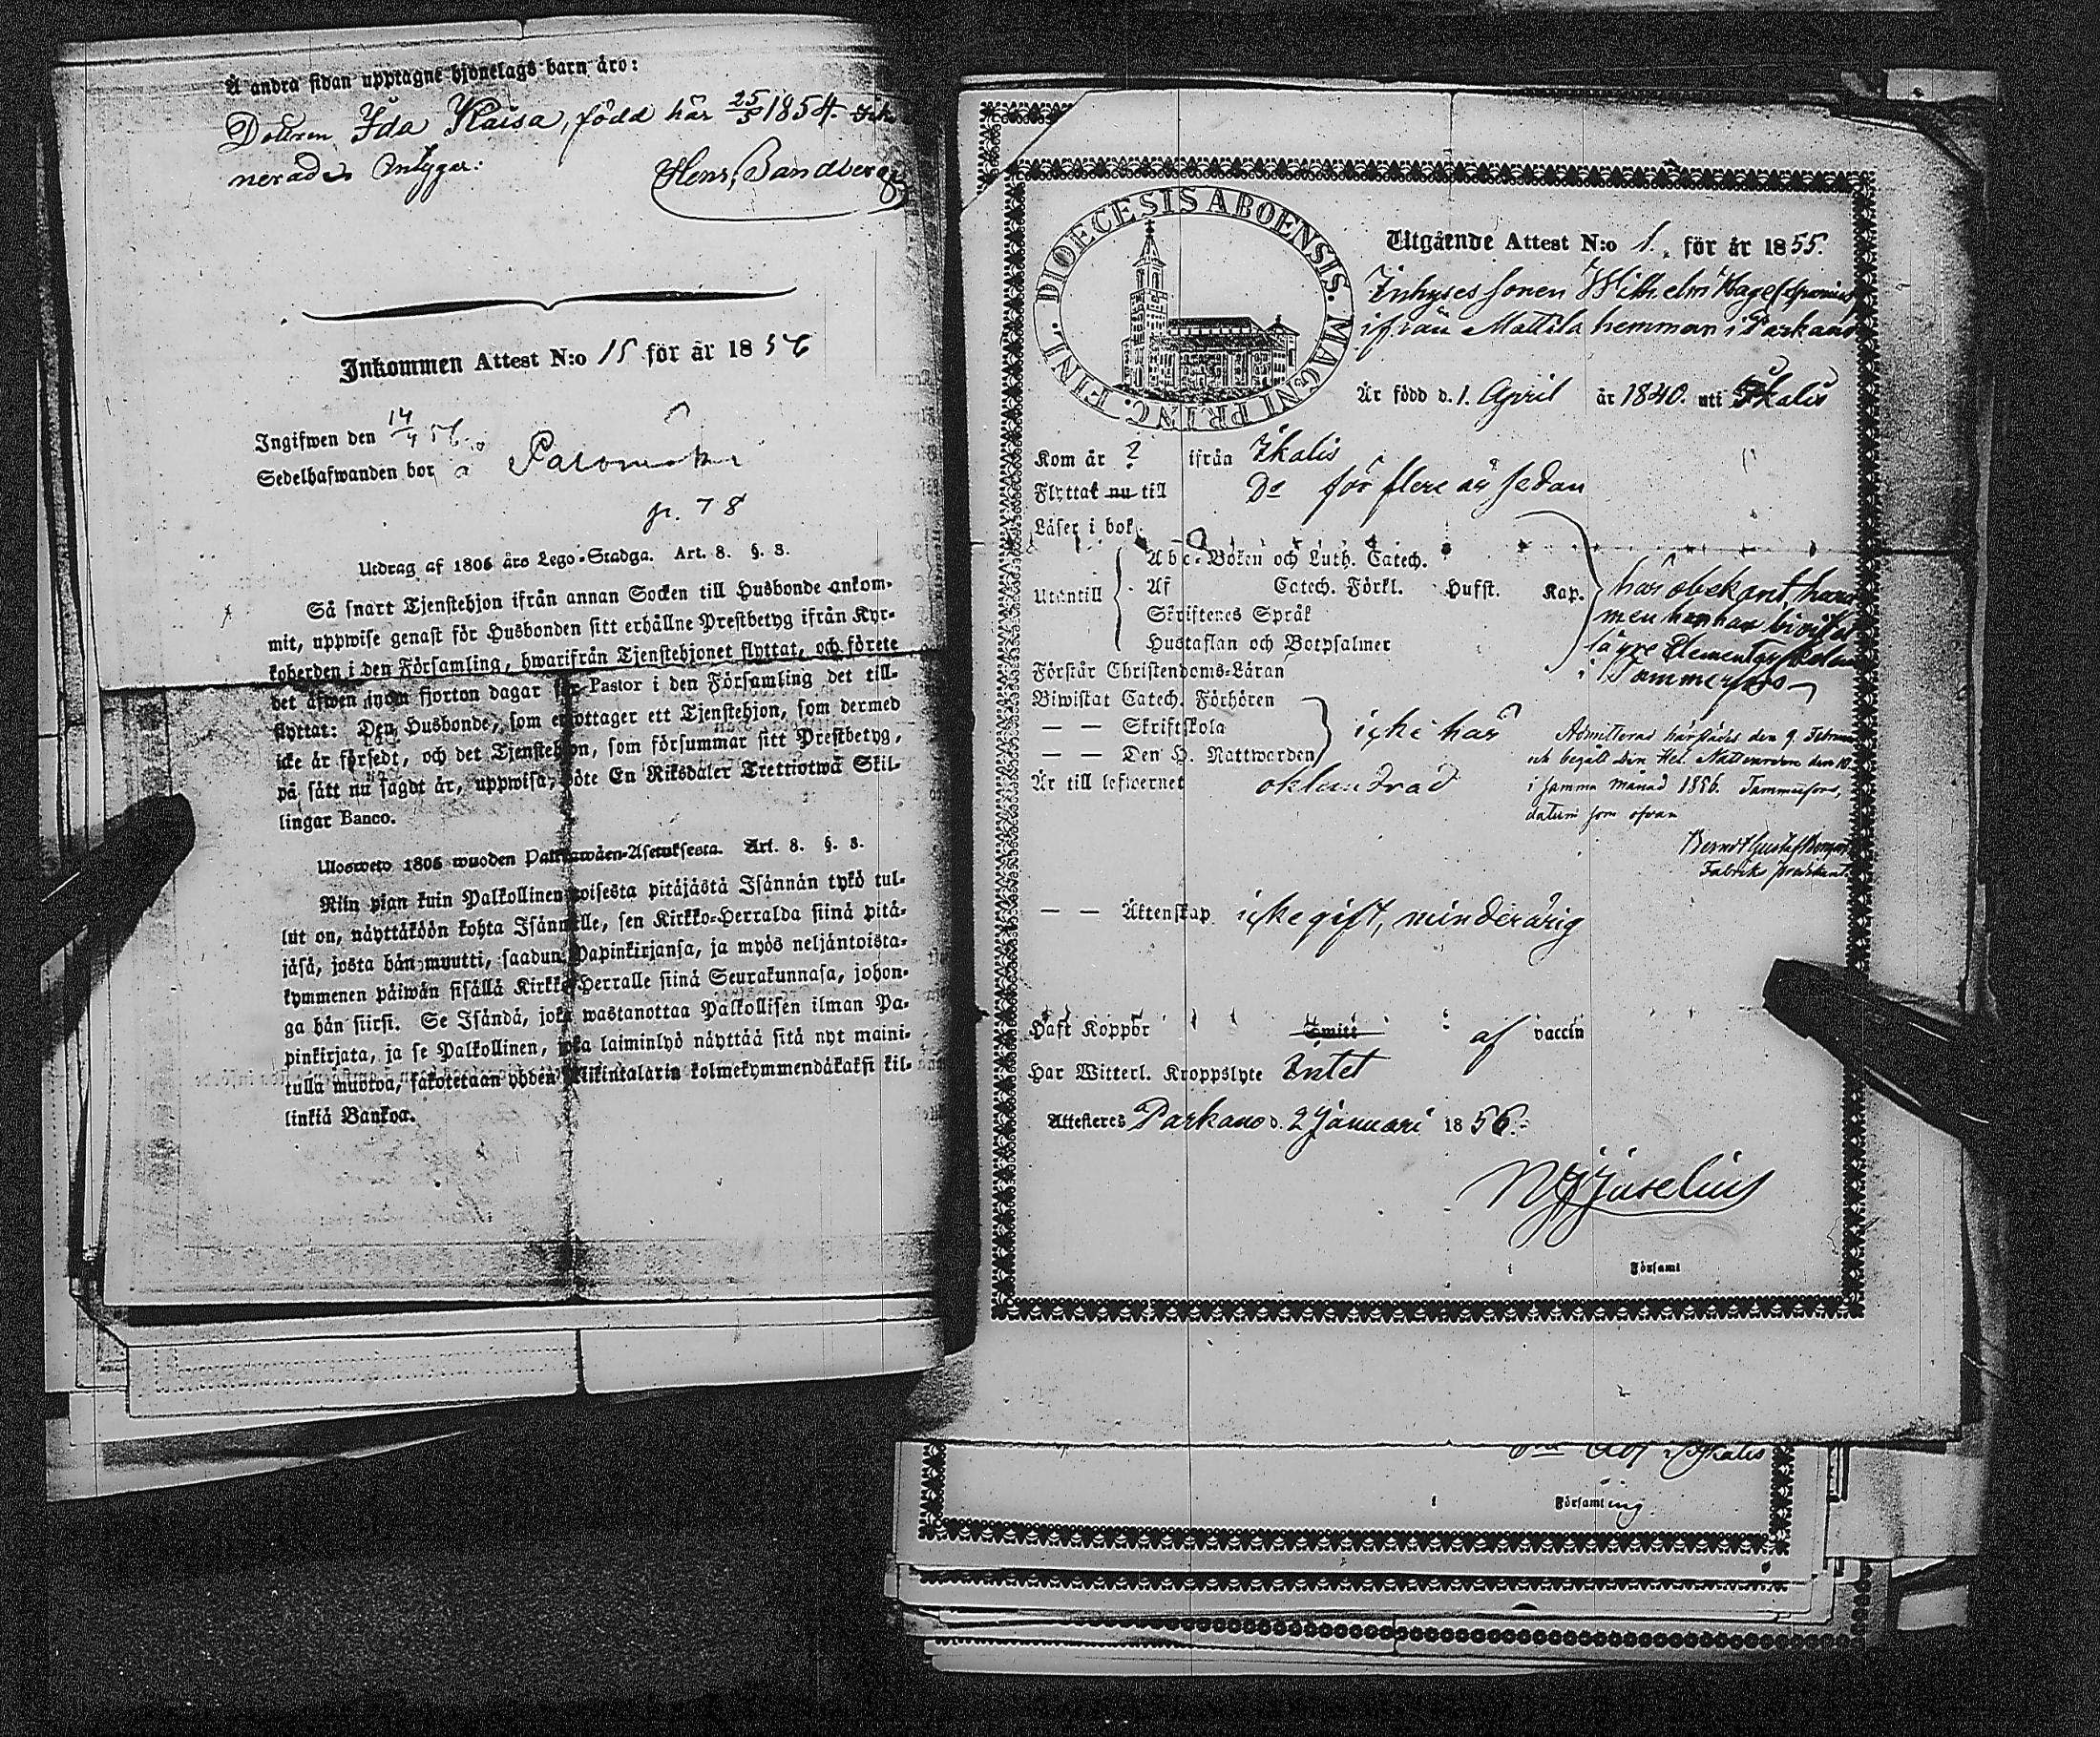 Å andra sidan upptagne hjonelags barn äro:
Dottren Ida Kaisa, född här 25/5 1854.
nerad, intygar:
Henr. Sandberg
Inkommen Attest N:o 15 för år 1856
Ingifwen den 14/4 56
Sedelhafwanden bor i
p. 78
Utdrag af 1805 års Lego-Stadga. Art. 8. §. 3.
Så snart Tjenstehjon ifrån annan Socken till Husbonde ankom-
mit, uppwise genast för Husbonden sitt erhållne Prestbetyg ifrån Kyr-
koherden i den Församling, hwarifrån Tjenstehjonet flyttat, och förete
det äfwen inom fjorton dagar för Pastor i den Församling det till-
flyttat: Den Husbonde, som emottager ett Tjenstehjon, som dermed
icke är försedt, och det Tjenstehjon, som försummar sitt Prestbetyg,
på sätt nu sagdt är, uppwisa, böte En Riksdaler Trettiotwå Skil-
lingar Banco.
Ulosweto 1805 wuoden Palkkawäen-Asetuksesta. Art. 8. §. 3.
Niin pian kuin Palkollinen toisesta pitäjästä Isännän tykö tul-
lut on, näyttäköön kohta Isännälle, sen Kirkko-Herralda siinä pitä-
jäsä, josta hän muutti, saadun Papinkirjansa, ja myös neljäntoista-
kymmenen päiwän sisällä Kirkko-Herralle siinä Seurakunnasa, johon-
ga hän siirsi. Se Isändä, joka wastanottaa Palkollisen ilman Pa-
pinkirjata, ja se Palkollinen, joka laiminlyö näyttää sitä nyt maini-
tulla muotoa, sakotetaan yhden Riikintalarin kolmekymmendäkaksi kil-
linkiä Bankoa.
DIOECESIS ABOENSIS. MAGNI PRINC. FINL.
Utgående Attest N:o 1. för år 1855.
Inhyses sonen Wilhelm
ifrån Mattila hemman i Parkano
Är född d. 1. April år 1840. uti Ikalis
Kom år ? ifrån Ikalis
Flyttat nu till Do för flere år sedan
Läser i bok
Utantill
Abc-Boken och Luth. Catech.
Af Catech. Förkl. Hufst. Kap.
Skriftenes Språk
Hustaflan och Botpsalmer
här obekant, han
men han har bivistat
lägre Elementarskolan
i Tammerfors
Förstår Christendoms-Läran
Biwistat Catech. Förhören
— — Skriftskola
— — Den H. Nattwarden
icke här
Admitterad härstädes den 9. Februari
och begått den Hel. Nattvarden den 10
i samma månad 1856. Tammerfors,
datum som ofvan
Berndt Gustaf
Fabriks predikant
Är till lefwernet oklandrad
— — Äktenskap icke gift, minderårig
Haft Koppor af vaccin
Har Witterl. Kroppslyte Intet
Attesteres Parkano d. 2 Januari 1856.
Juselius
i Församl
Ikalis
i Församling.